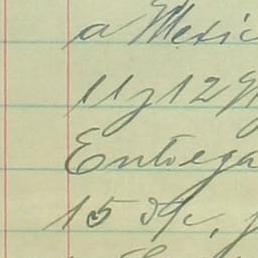 a Mexic
11 y 12 N
Entrega
15 Dic, f